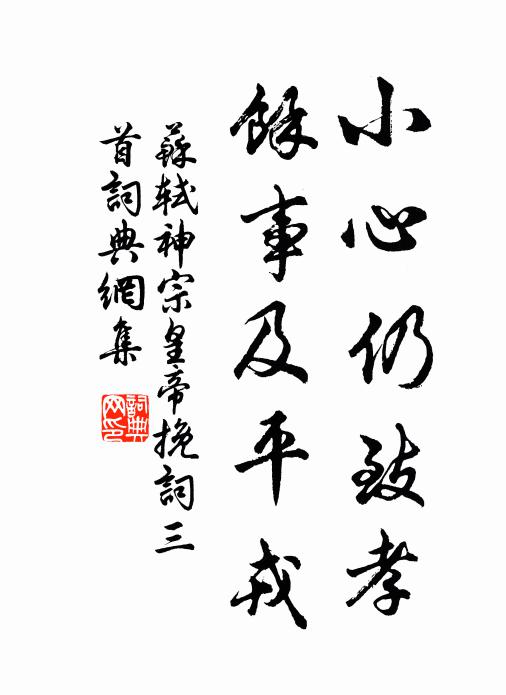 小心仍致孝
餘事及平戎
蘇軾神宗皇帝挽詞三
首詞典網集
詞典
网印